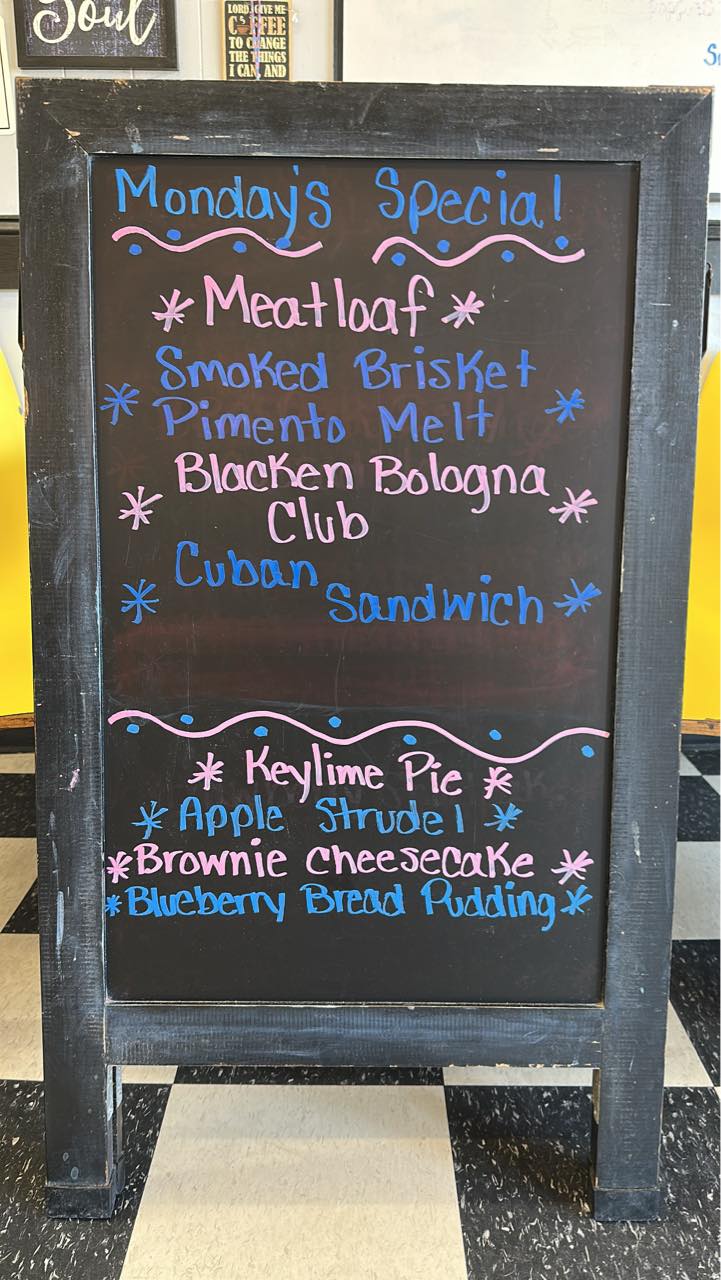 Soul
LORD, GIVE ME
COFFEE
TO CHANGE
THE THINGS
I CAN, AND
Monday's Special
*Meatloaf*
Smoked Brisket
* Pimento Melt *
Blacken Bologna
* Club *
Cuban
* Sandwich *
* Keylime Pie *
* Apple Strudel *
*Brownie Cheesecake *
*Blueberry Bread Pudding*